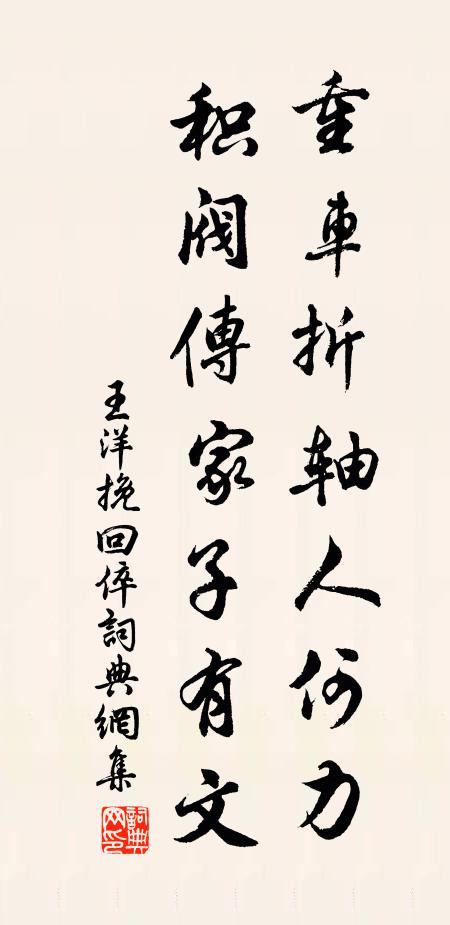 重車折軸人何力
积阀傳家子有文
王洋挽回倅詞典網集
詞典网印